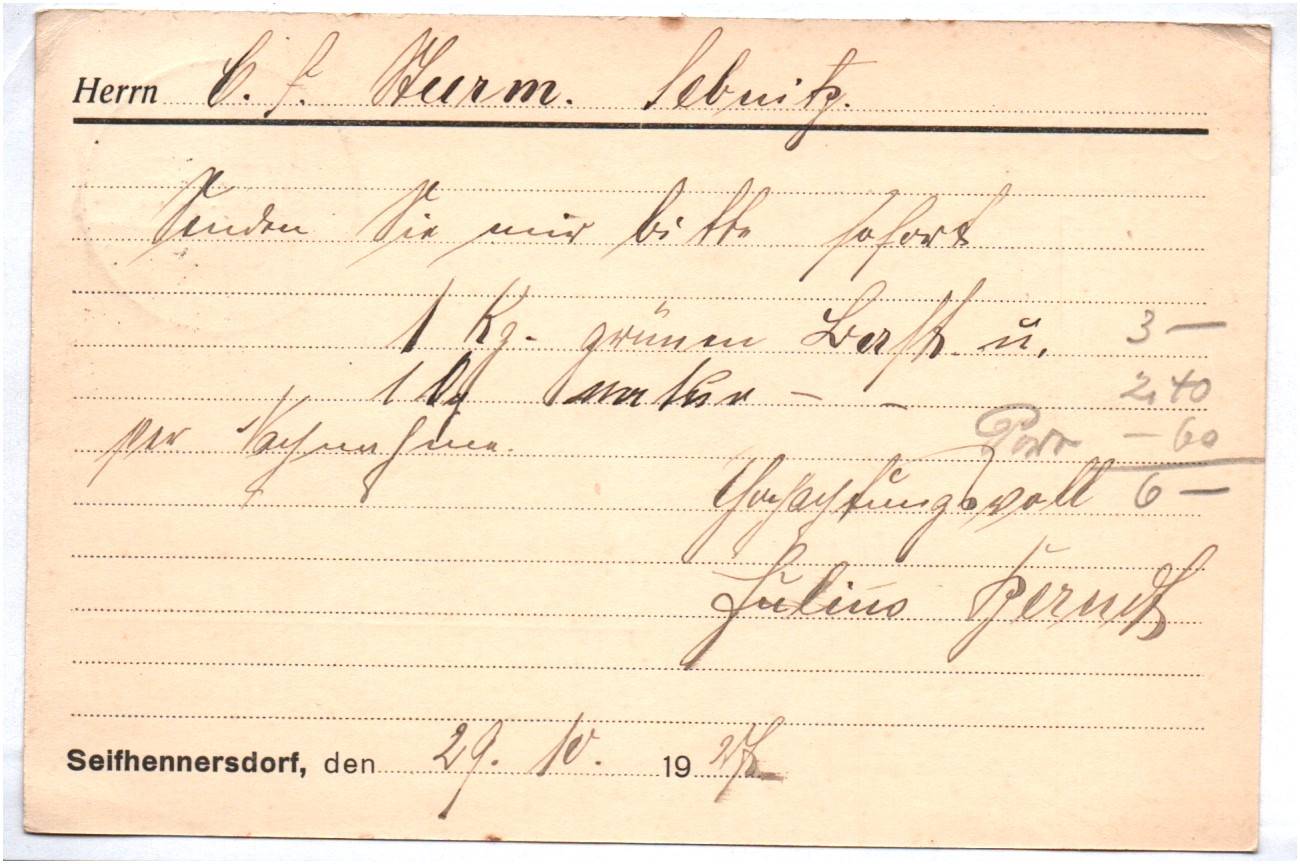 Herrn C. F. Sturm. Sebnitz.
Senden Sie mir bitte sofort
1 Kg. grünen Bast u. 3 —
1 Kg natur — - 2,40
per Nachnahme. Porto — 60
Hochachtungsvoll 6 —
Julius Berndt
Seifhennersdorf, den 29. 10. 19 27